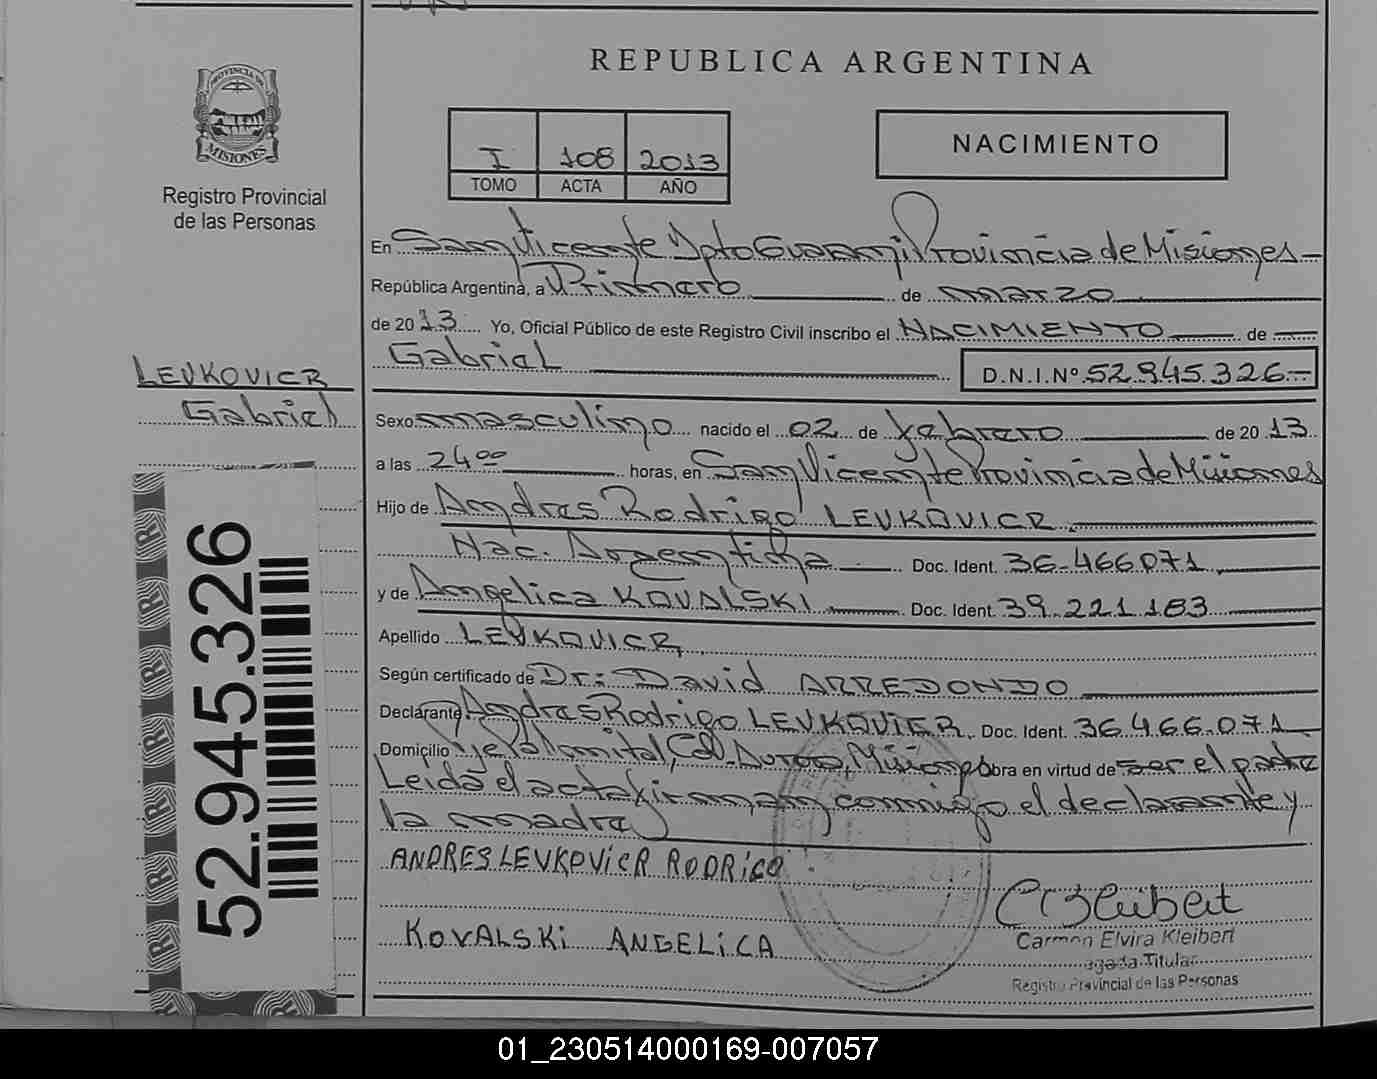 REPUBLICA ARGENTINA
PROVINCIA DE
MISIONES
Registro Provincial
de las Personas
I 108 2013
TOMO ACTA AÑO
NACIMIENTO
En San Vicente Dpto Guarani Provincia de Misiones
República Argentina, a Primero de marzo
de 2013 Yo, Oficial Público de este Registro Civil inscribo el NACIMIENTO de
Gabriel D.N.I.Nº 52.945.326
LEVKOVICR
Gabriel
Sexo masculino nacido el 02 de febrero de 2013
a las 24⁰⁰ horas, en San Vicente Provincia de Misiones
Hijo de Andres Rodrigo LEVKOVICR
Nac. Argentina Doc. Ident. 36.466.071
y de Angelica KOVALSKI Doc. Ident. 39.221.183
Apellido LEVKOVICR
Según certificado de Dr: David ARREDONDO
Declarante Andres Rodrigo LEVKOVICR Doc. Ident. 36.466.071
Domicilio Pje Palmital, Col. Misiones Obra en virtud de ser el padre
Leida el acta firman conmigo el declarante y
la madre
ANDRES LEVKOVICR RODRIGO
KOVALSKI ANGELICA
Carmen Elvira Kleibert
Titular
Registro Provincial de las Personas
52.945.326
01_230514000169-007057